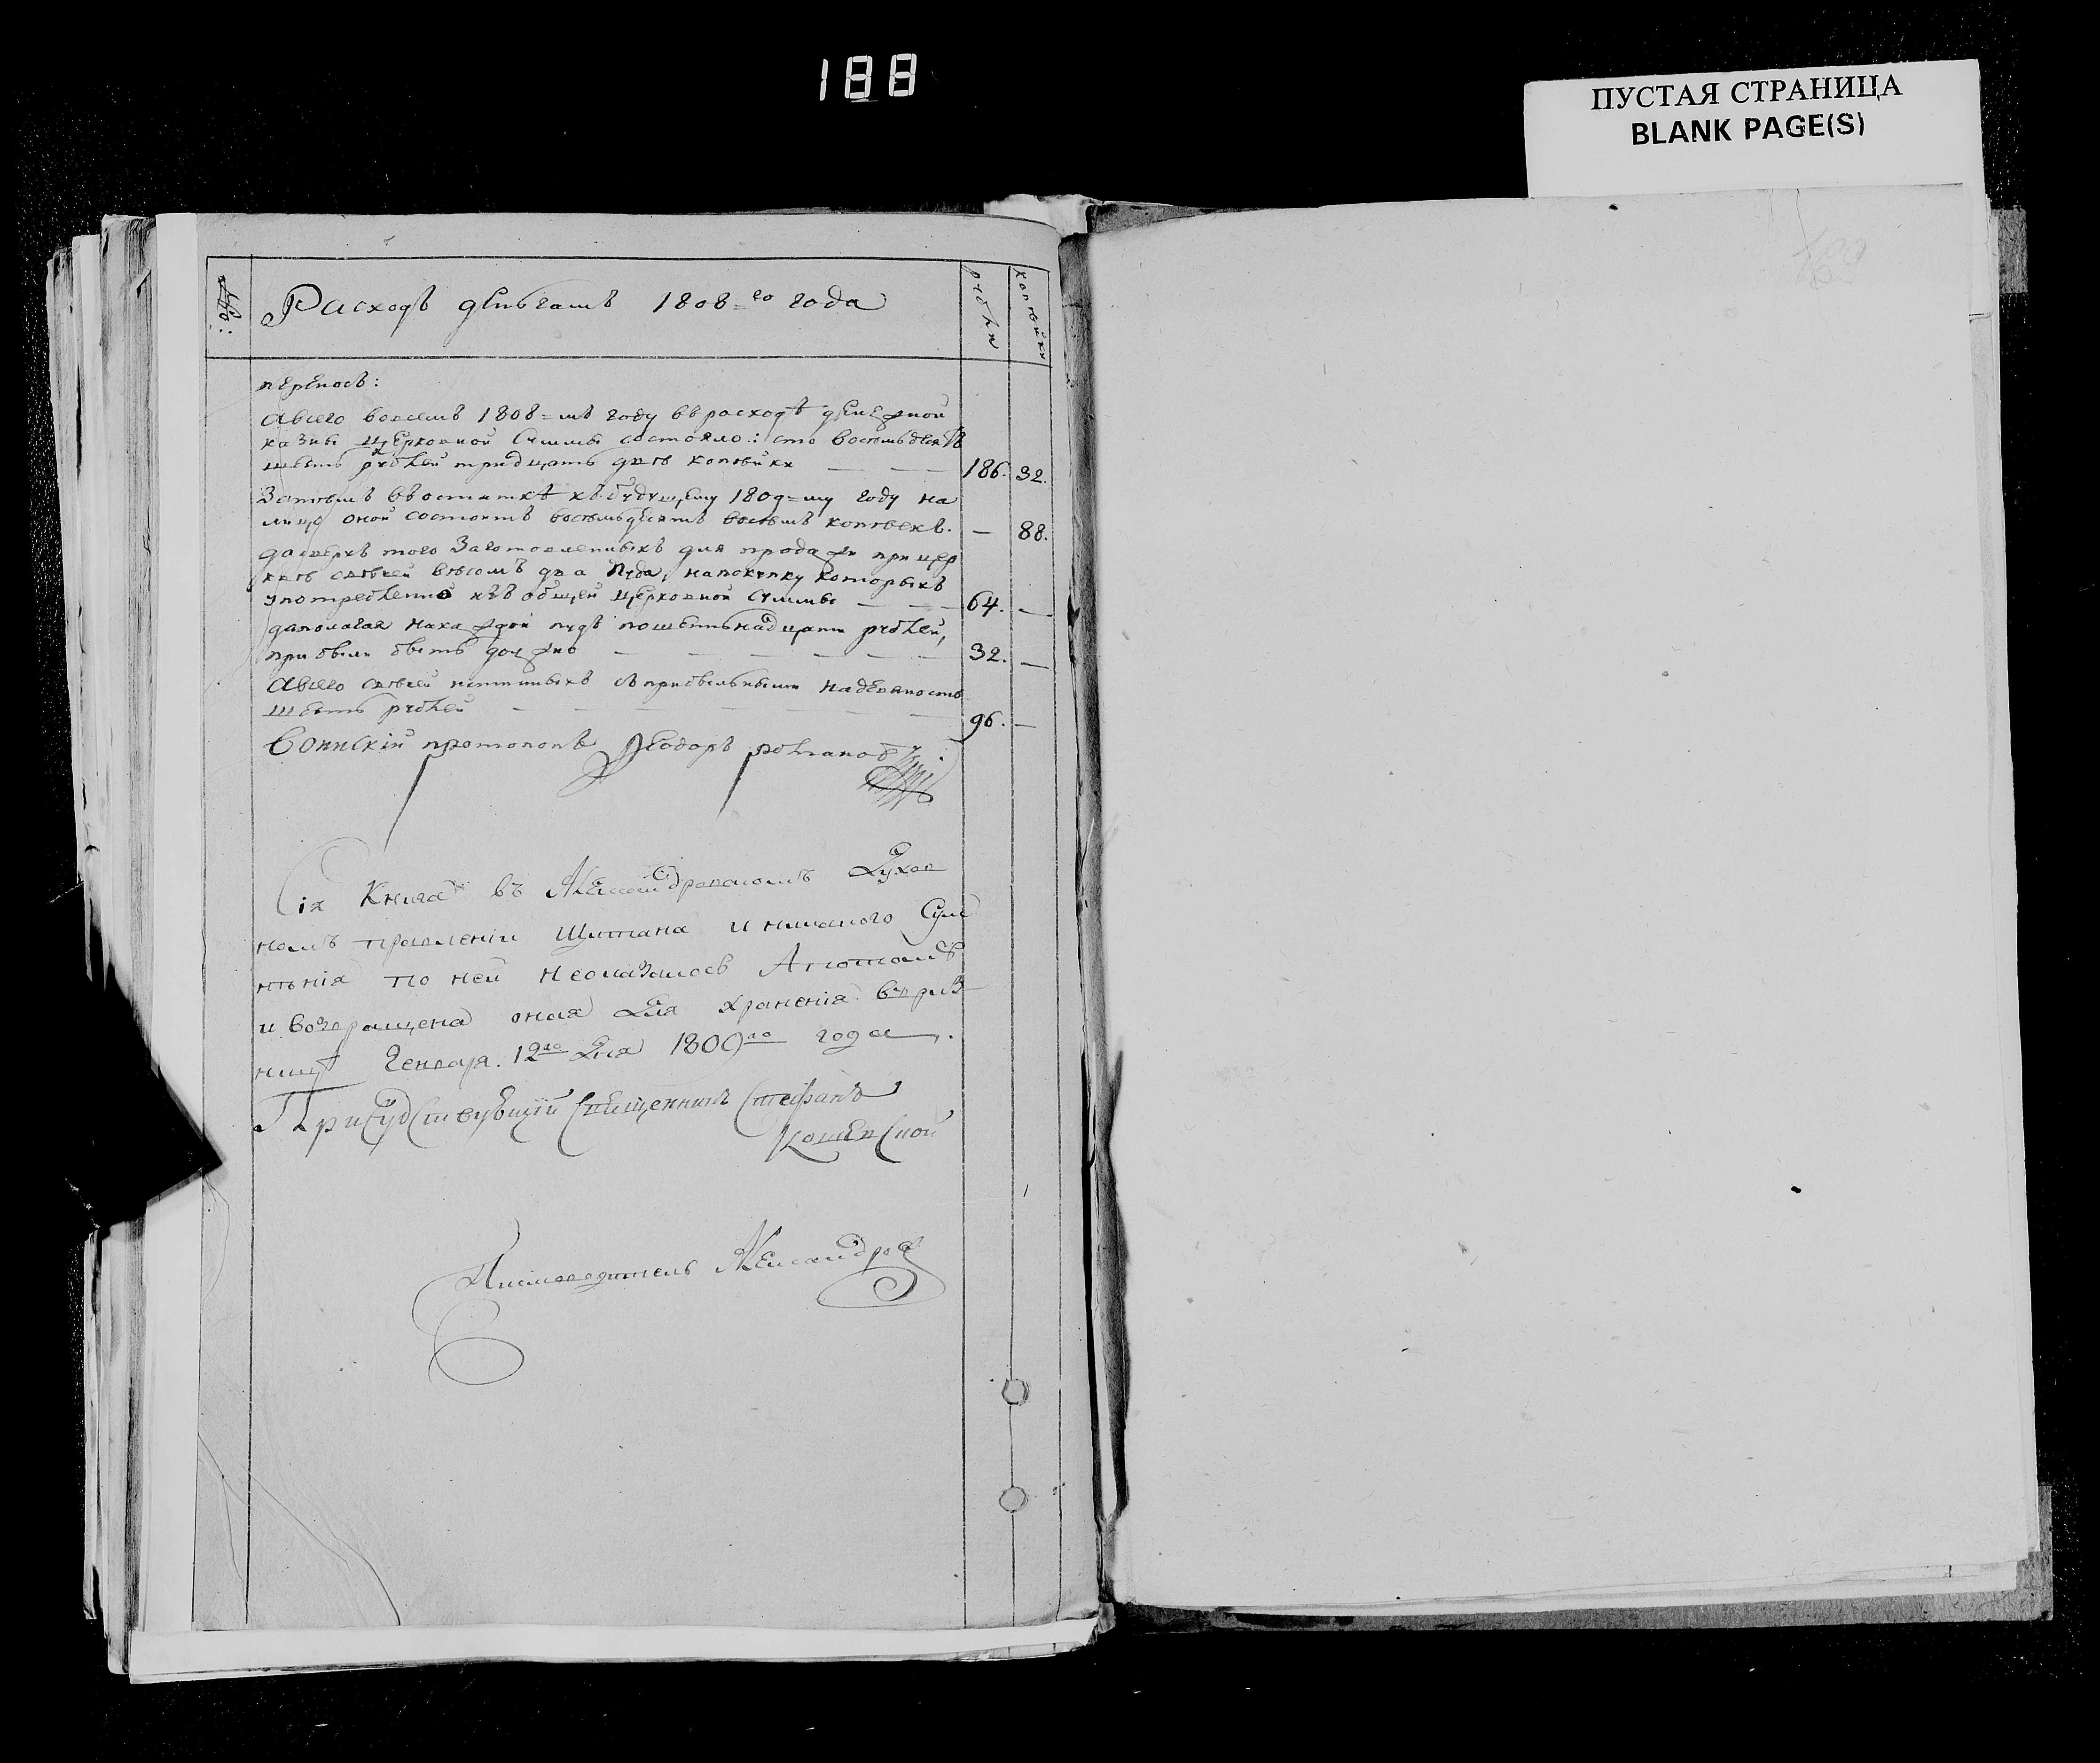 188
ПУСТАЯ СТРАНИЦА
BLANK PAGE(S)
№: Расходъ деньгамъ 1808=го года рубли копѣйки
переносъ:
Авсего вовсемъ 1808=мъ году въ расходѣ денежной
казны церковной суммы состояло: сто восемьдесятъ
шесть рублей тридцать двѣ копѣйки — — 186. 32.
Затѣмъ въ остаткѣ къ будущему 1809=му году на
лицо оной состоитъ восемьдесятъ восемь копѣекъ. — 88.
Да сверхъ того заготовленныхъ для продажи при цер
квѣ свѣчей вѣсомъ два пуда, на покупку которыхъ
употребленно изъ общей церковной суммы — — 64. —
да полагая на каждой пудъ по шестьнадцати рублей,
прибыли быть должно — — — — — — 32. —
Авсего свѣчей истинныхъ съ прибыльными на девяносто
шесть рублей — — — — — — 96. —
протопопъ Ѳеодоръ романовъ
Сія Книга въ Александровскомъ Духов
номъ правленіи щитана и никакого Сум
нѣнія по ней неоказалось А потомъ
и возвращена оная для храненія въ риз
ницу Генваря. 12го Дня 1809го года.
Присудствующій Священникъ Стефанъ
Писмоводитель Александров